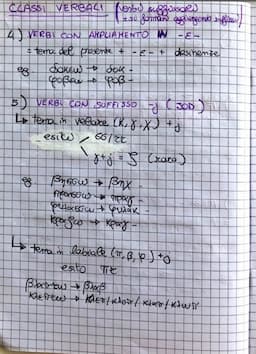 CLASSI VERBALI (verbi suffissali
= si formano aggiungendo suffisso)
4) VERBI CON AMPLIAMENTO IN -E-
= tema del presente + -E- + desinenze
eg. δοκεω → δοκ-
φοβεω → φοβ-
5) VERBI CON SUFFISSO -J (JOD)
↳ tema in velare (κ, γ, χ) + j
esito < σσ/ττ
γ+j = ζ (rara)
eg βησσω → βηχ
πρασσω → πραγ-
φυλασσω → φυλακ-
κραζω → κραγ-
↳ tema in labiale (π, β, φ) + j
esito πτ
βλαπτω → βλαβ
κλεπτω → κλεπ/κλοπ/κλαπ/κλωπ